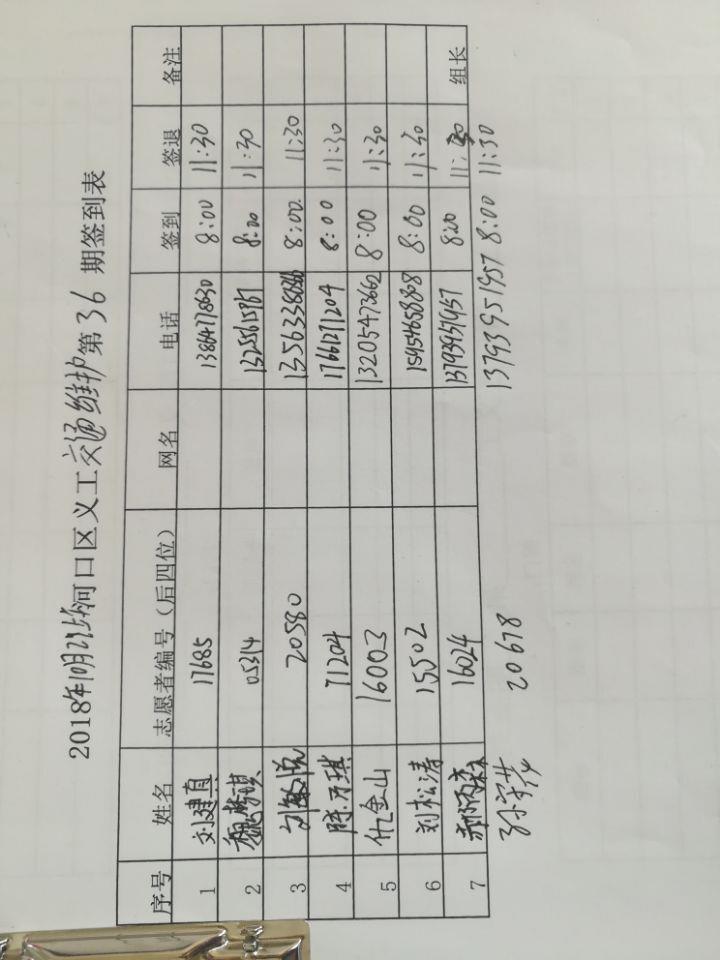 2018年10月21号河口区义工交通维护第36期签到表
序号 姓名 志愿者编号（后四位） 网名 电话 签到 签退 备注
1 刘建直 17685 13864778630 8:00 11:30
2 魏梦琪 05314 8:00 11:30
3 20580 8:00. 11:30
4 71204 17661271204 8:00 11:30
5 仇金山 16003 13205473662 8:00 11:30
6 刘松涛 15502 15954658808 8:00 11:30
7 16024 13793951957 8:00 11:30 组长
20678 13793951957 8:00 11:30